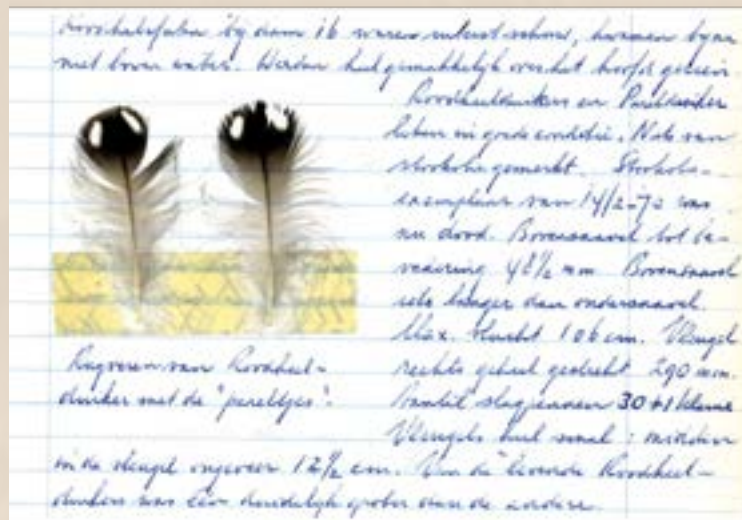 bij dam 16 waren uiterst schuw, kwamen bijna
niet boven water. Werden heel gemakkelijk over het hoofd gezien.
Roodkeelduikers en Parelduiker
leken in goede conditie. Niets van
stookolie gemerkt. Stookolie-
exemplaar van 14/2-72 was
nu dood. Bovensnavel tot be-
vedering 48½ mm Bovensnavel
iets langer dan ondersnavel.
Max. vlucht 106 cm. Vleugel
rechts geheel gestrekt 290 mm.
Aantal slagpennen 30 +1 kleine
Vleugels heel smal: midden
in de vleugel ongeveer 12½ cm. Van de levende Roodkeel-
duikers was één duidelijk groter dan de andere.
Rugveren van Roodkeel-
duiker met de "pareltjes".